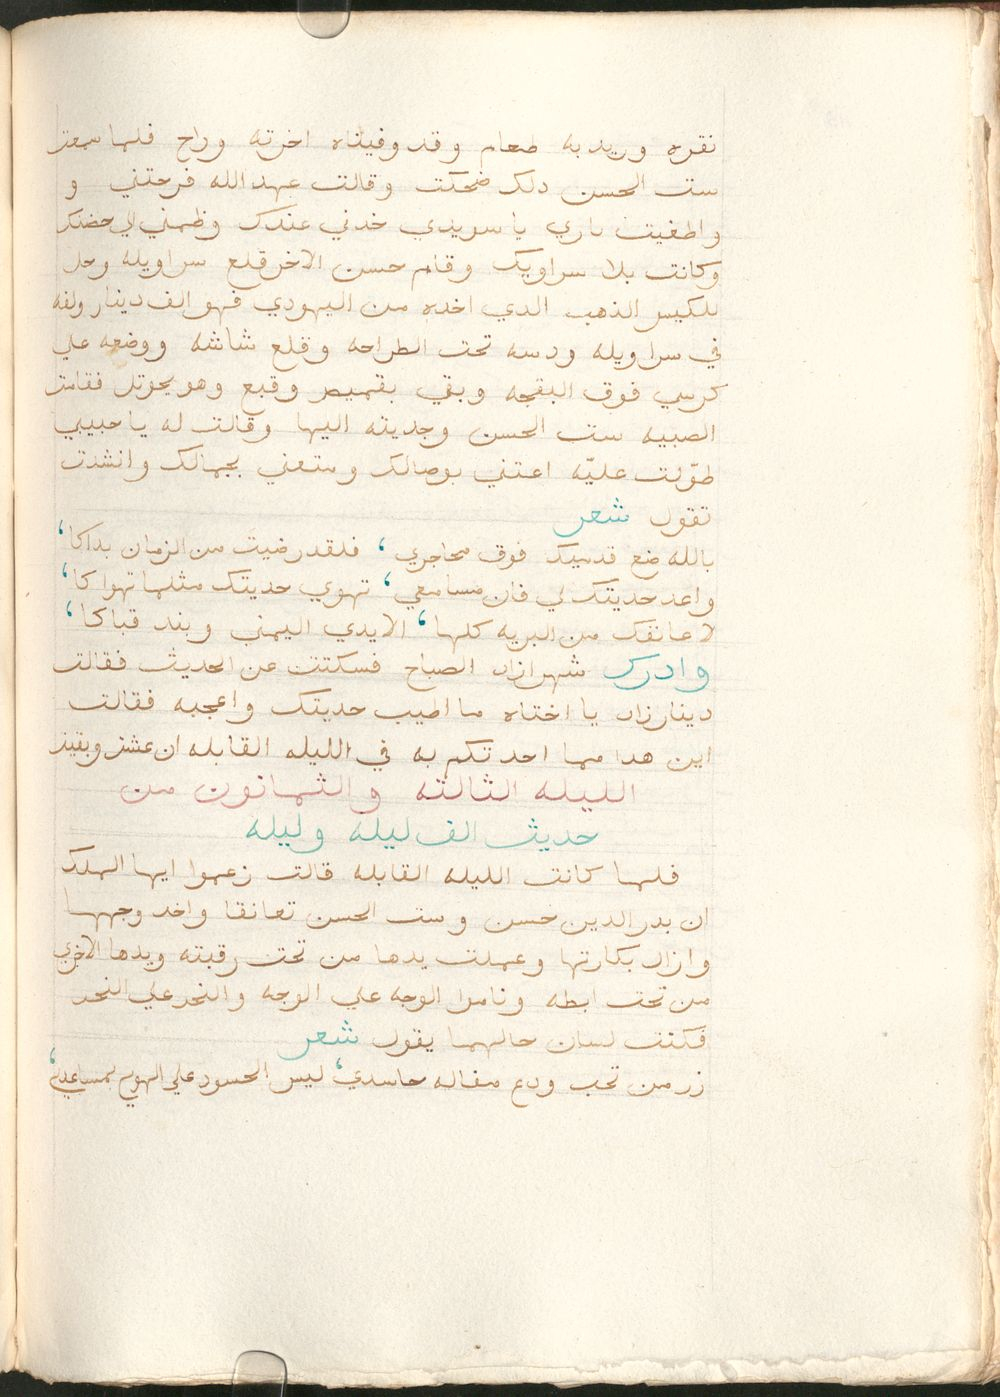 نقره وزبديه طعام وقد وفيناه اخرته وراح فلما سمعت
ست الحسن دلك ضحكت وقالت عهد الله فرحتني و
واطفيت ناري يا سويدي خدني عندك وظمني الي حضنك
وكانت بلا سراويك وقام حسن الاخر قلع سراويله وحل
للكيس الذهب الدي اخده من اليهودي فهو الف دينار ولفه
في سراويله ودسه تحت الطراحه وقلع شاشه ووضعه علي
كرسي فوق البقجه وبقي بقميص وقبع وهو يحوتل فقامت
الصبيه ست الحسن وجديته اليها وقالت له يا حبيبي
طوّلت عليّه اعتني بوصالك ومتعني بجمالك وانشدت
تقول شعر
بالله ضع قدميك فوق محاجري، فلقد رضيت من الزمان بداكا،
واعد حديتك لي فان مسامعي، تهوي حديتك مثلما تهواكا،
لا عانقك من البريه كلها، الايدي اليمني وبند قباكا،
وادرك شهرازاد الصباح فسكتت عن الحديث فقالت
دينارزاد يا اختاه ما اطيب حديتك واعجبه فقالت
اين هدا مما احدتكم به في الليله القابله ان عشت وبقيت
الليله الثالثه والثمانون من
حديث الف ليله وليله
فلما كانت الليله القابله قالت زعموا ايها الملك
ان بدر الدين حسن وست الحسن تعانقا واخد وجهها
وازال بكارتها وعملت يدها من تحت رقبته ويدها الاخري
من تحت ابطه وناموا الوجه علي الوجه والنحر علي النحر
فكنت لسان حالهما يقول شعر
زر من تحب ودع مقاله حاسدي، ليس الحسود علي الهوي بمساعدي،